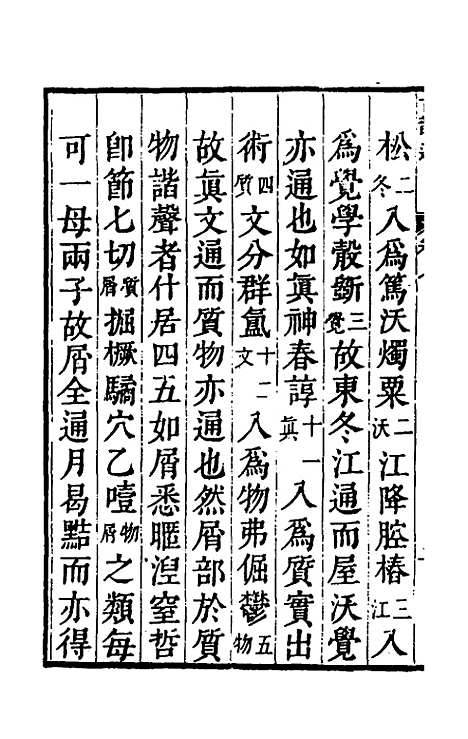 松二冬入爲篤沃燭粟二沃江降腔樁三江入
爲覺學殼斵三覺故東冬江通而屋沃覺
亦通也如眞神春諄十一眞入爲質實出
術四質文分群氳十二文入爲物弗倔鬱五物
故眞文通而質物亦通也然屑部於質
物諧聲者什居四五如屑悉暱涅窒哲
卽節七切質屑掘橛驈穴乙噎物屑之類每
可一母兩子故屑全通月曷黠而亦得